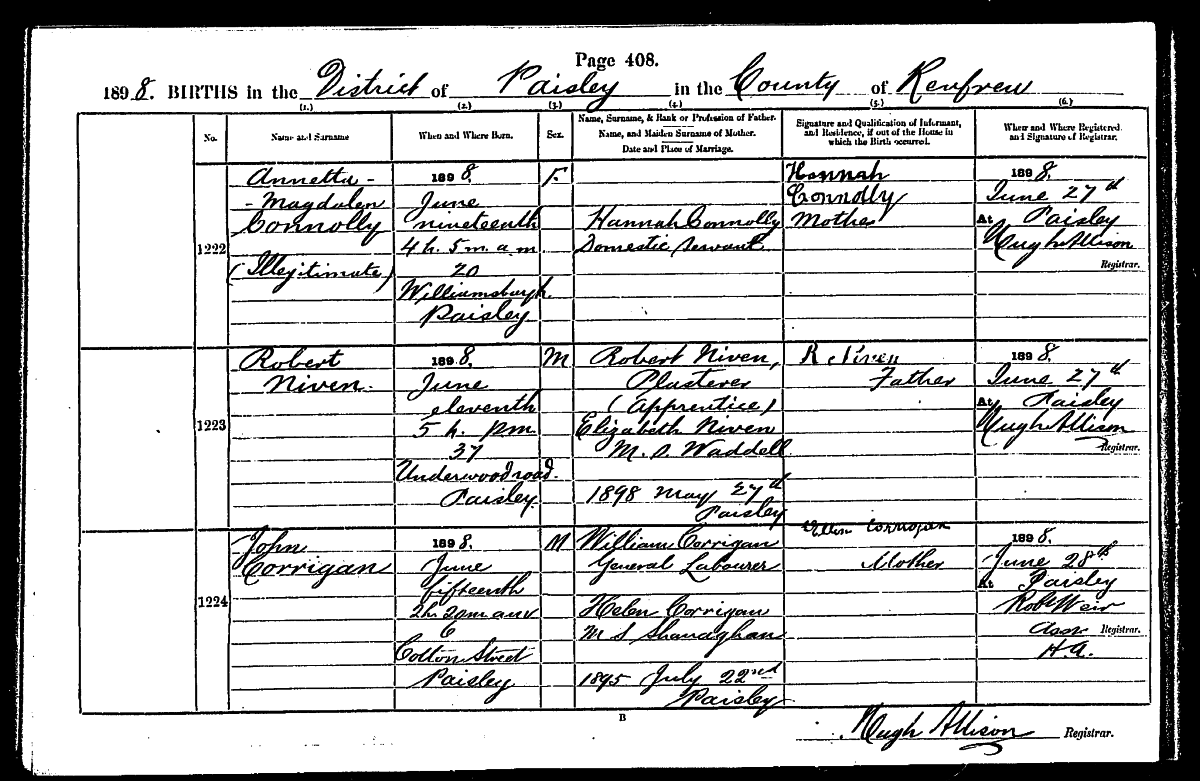 Page 408.
1898. BIRTHS in the District of Paisley in the County of Renfrew
(1.) (2.) (3.) (4.) (5.) (6.)
No.
Name and Surname
When and Where Born.
Sex.
Name, Surname, & Rank or Profession of Father.
Name, and Maiden Surname of Mother.
Date and Place of Marriage.
Signature and Qualification of Informant,
and Residence, if out of the House in
which the Birth occurred.
When and Where Registered,
and Signature of Registrar.
1222
Annetta -
- Magdalen
Connolly
(Illegitimate)
1898.
June
nineteenth
4 h. 5 m. a.m.
20
Williamsburgh.
Paisley
F.
Hannah Connolly
Domestic Servant
Hannah
Connolly
Mother
1898.
June 27th
At Paisley
Hugh Allison
Registrar.
1223
Robert
Niven.
1898.
June
eleventh
5 h. p.m.
37
Underwood road.
Paisley.
M
Robert Niven,
Plasterer
(Apprentice)
Elizabeth Niven
M. S. Waddell
1898 May 27th
Paisley
R Niven
Father
1898.
June 27th
At Paisley
Hugh Allison
Registrar.
1224
John
Corrigan
1898.
June
fifteenth
2h. 20m
6
Cotton Street
Paisley
M
William Corrigan
General Labourer
Helen Corrigan
M S Shanaghan
1895 July 22nd
Paisley
Ellen Corrigan
Mother
1898.
June 28th
At Paisley
Robt Weir
Assr. Registrar.
H.A.
B
Hugh Allison Registrar.